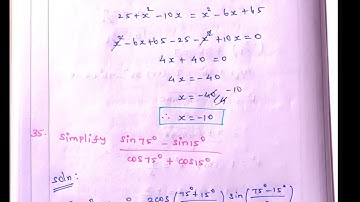 25+x² -10x = x² -6x+65
x² -6x+65 -25 -x² +10x =0
4x + 40 = 0
4x = -40
x = -40/4 -10
∴ x = -10
35. Simplify sin75° - sin15° / cos75° + cos15°
Soln:
2cos (75°+15° sin (75°-15°